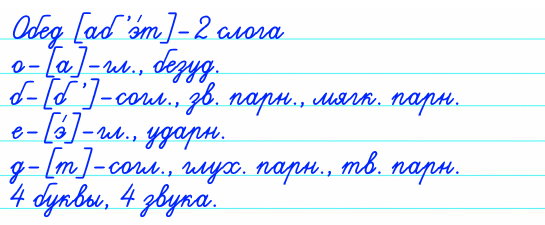 Обед [аб'э́т]-2 слога
о-[а]-гл., безуд.
б-[б']-согл., зв. парн., мягк. парн.
е-[э́]-гл., ударн.
д-[т]-согл., глух. парн., тв. парн.
4 буквы, 4 звука.